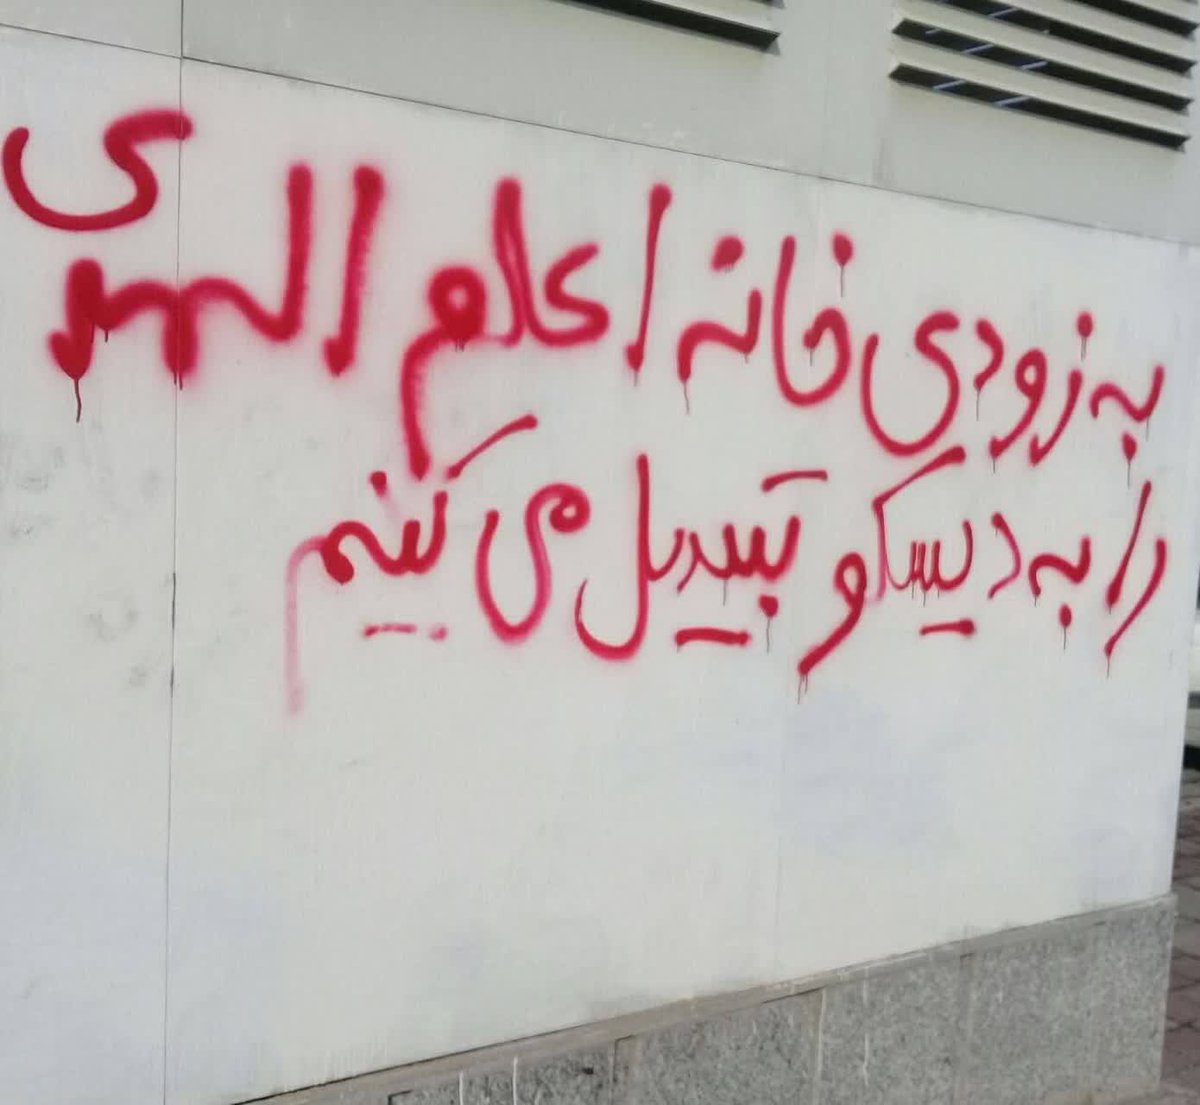 به زودی خانه اعلم الهدی
را به دیسکو تبدیل می کنیم